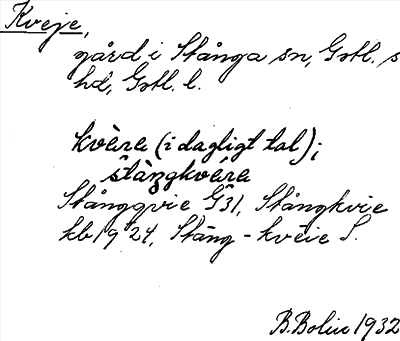 Kveje,
gård i Stånga sn, Gotl. s
hd, Gotl. l.
kvära (i dagligt tal);
stàŋgkvéra
Stånggvie G31, Stångkvie
kb 1924, Stång-kvéie S.
B. Bolin 1932